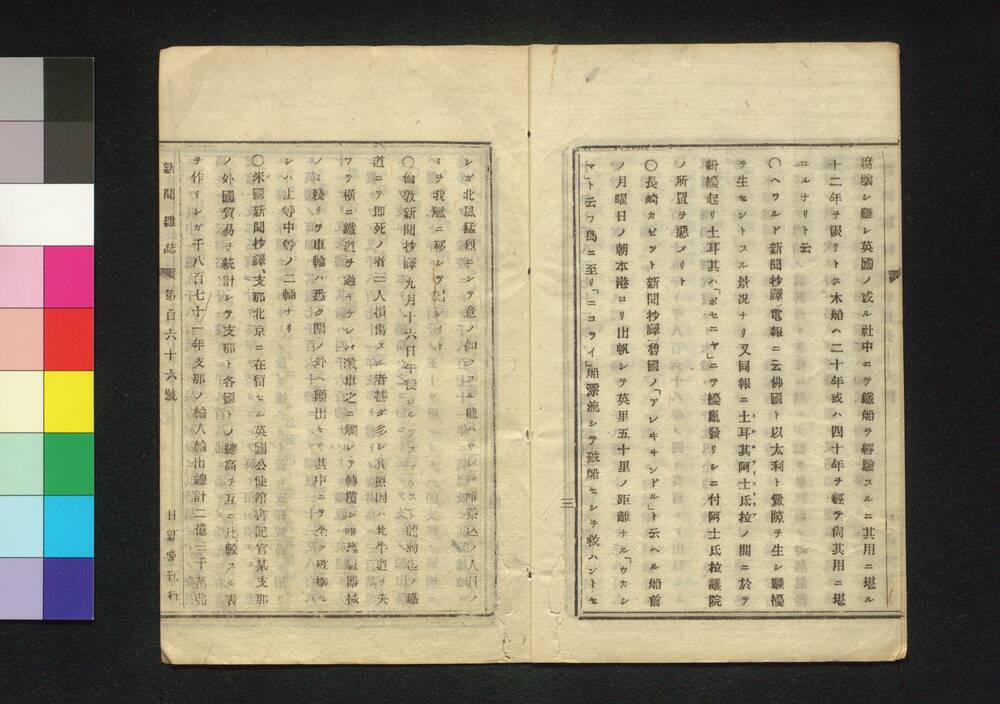 腐壞シ難シ英國ノ或ル社中ニテ鐵船ヲ經驗スルニ其用ニ堪ル
十二年ヲ限リトス木船ハ二十年或ハ四十年ヲ經テ尚其用ニ堪
ユルナリト云
〇ヘラルド新聞抄譯電報ニ云佛國ト以太利ト釁隙ヲ生シ騷擾
ヲ生セントスル景况ナリ又同報ニ土耳其阿士氐拉ノ間ニ於テ
紛擾起リ土耳其ハ「ボセニヤ」ニテ擾亂發リシニ付阿士氐拉議院
ノ所置ヲ惡メリト
〇長崎カゼット新聞抄譯魯國ノ「アレキサンドル」ト云ヘル船前
ノ月曜日ノ朝本港ヨリ出帆シテ英里五十里ノ距離ナル「ウカシ
マ」ト云フ島ニ至リ「ニコライ」船漂流シテ破船セシヲ救ハントセ
三
シガ北風猛烈ニシテ意ノ如クスル能ハザレハ唯乘込ノ人員ノ
ミヲ我艦ニ移シテ
〇倫敦新聞抄譯九月十六日午後
道ニテ即死ノ者三人損傷スル者甚ダ多シ其原因ハ牝牛道ヲ失
フテ橫ニ鐵道ヲ過キケレハ滊車之ニ觸レテ轉覆シ唯蒸氣器械
ノミ殘リテ車輪ハ悉ク閾ノ外ヘ頭出セリ其中ニテ全ク破壞セ
シハ上等中等ノ二輛ナリ
〇米國新聞抄譯、支那北京ニ在留セル英國公使舘書記官某支那
ノ外國貿易ヲ統計シテ支那ト各國トノ總高ヲ互ニ比較スル表
ヲ作リシガ千八百七十一年支那ノ輸入輸出總計二億三千萬弗
新聞雜誌 第百六十六號 日新堂刊行